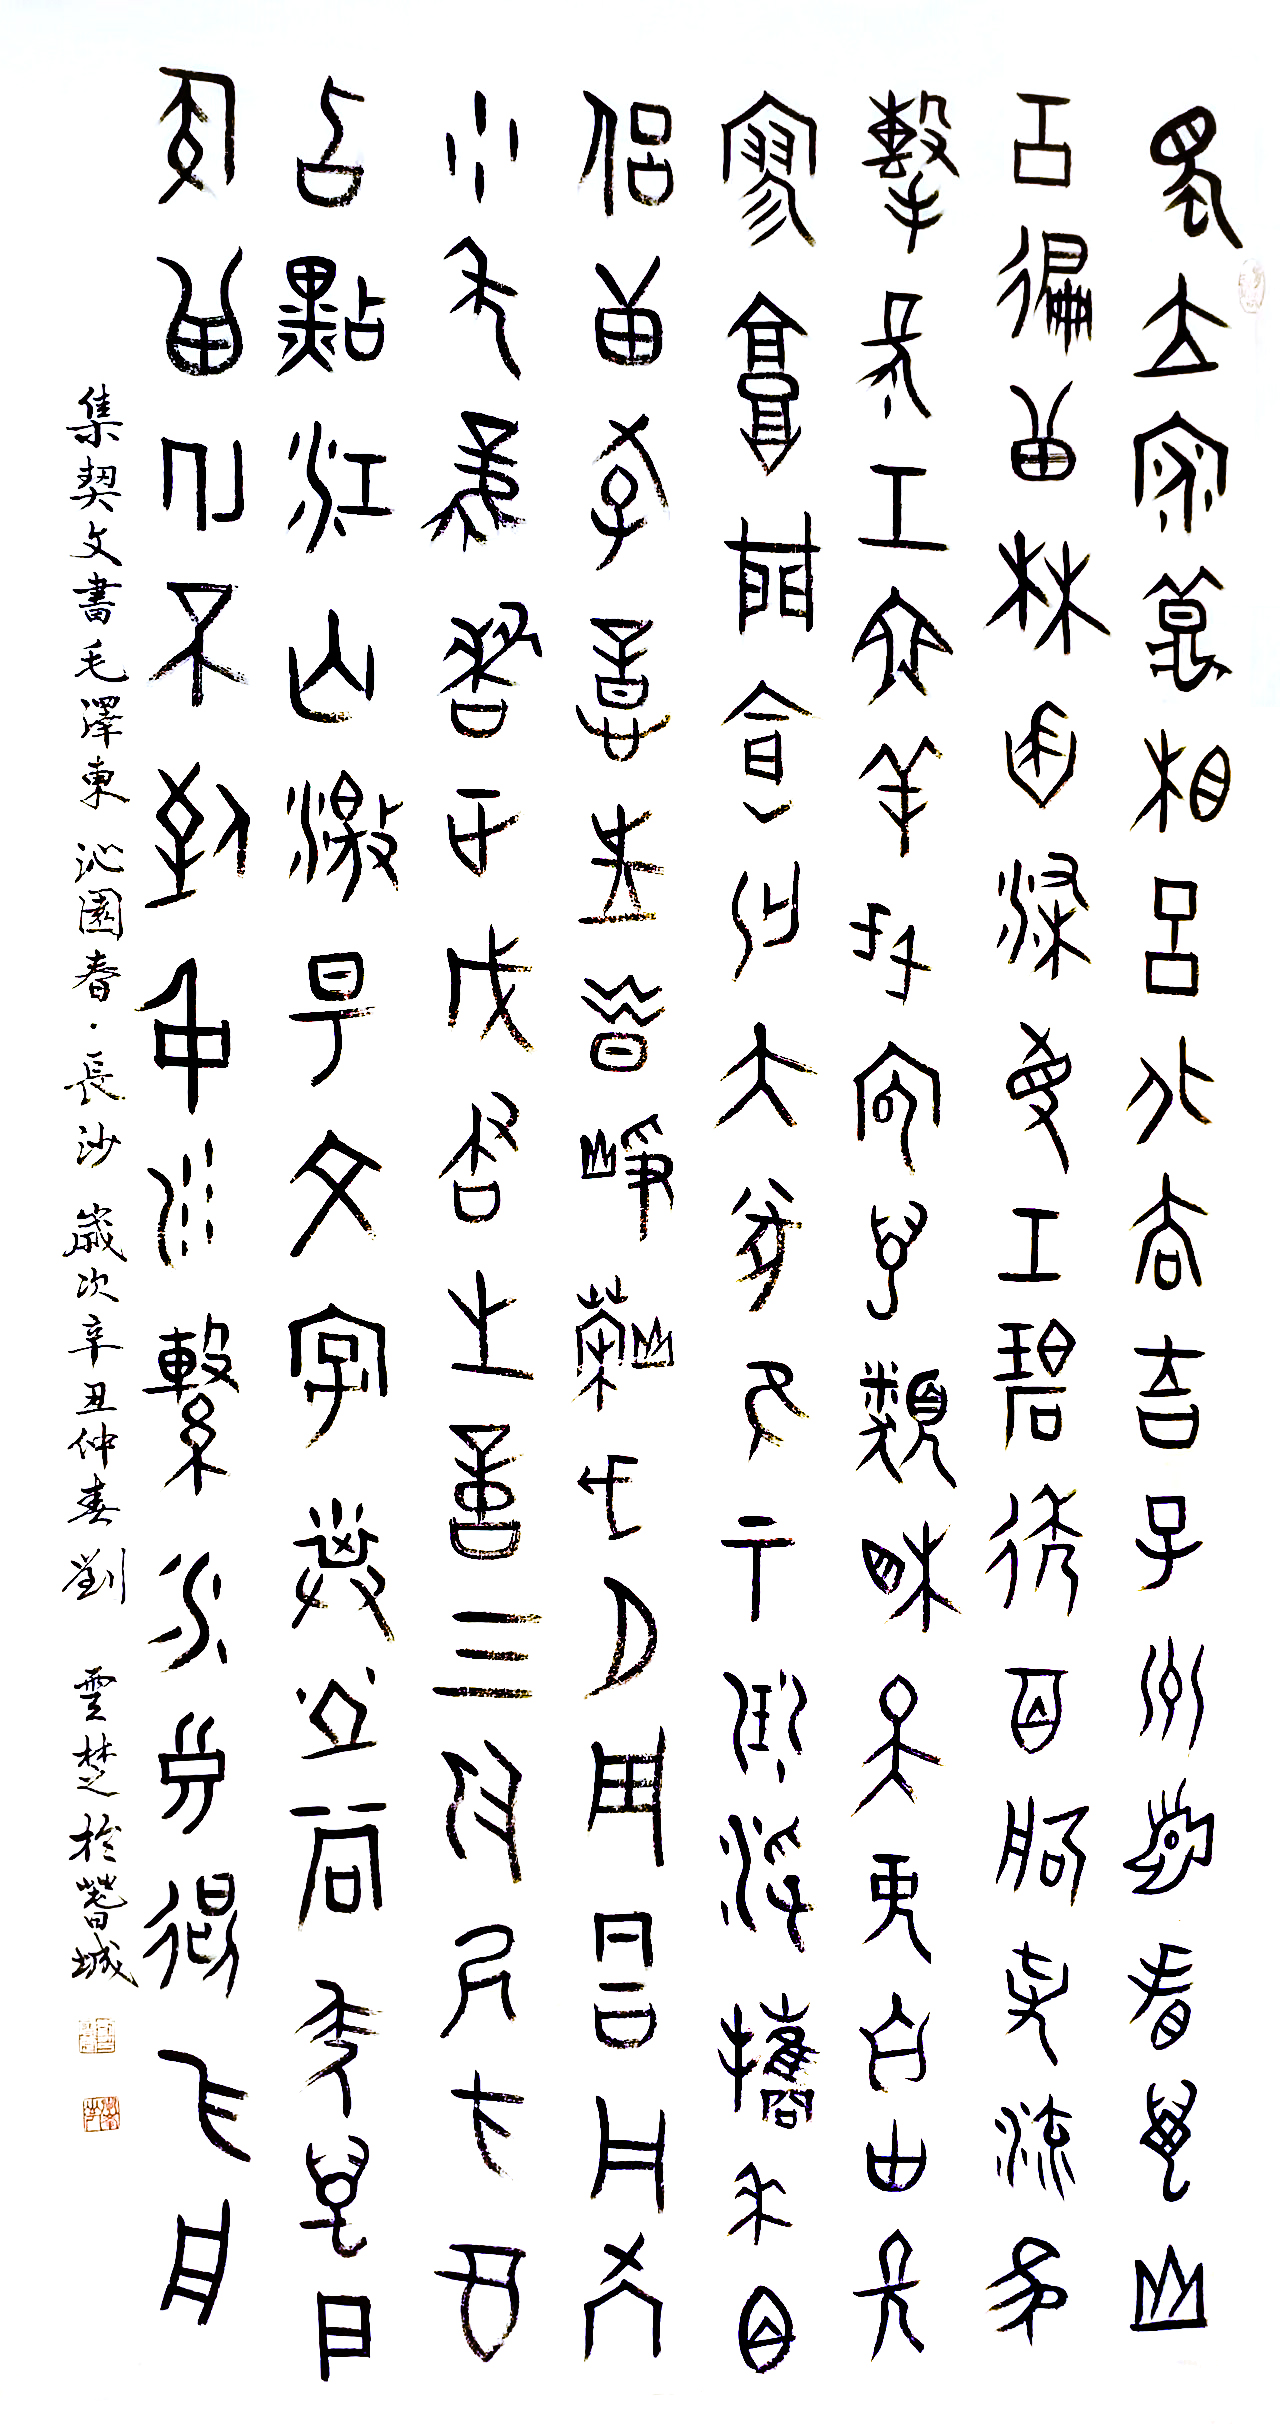 獨立寒秋湘江北去橘子洲頭看萬山
紅遍層林盡染漫江碧透百舸爭流鷹
擊長空魚翔淺底萬類霜天競自由悵
寥廓問蒼茫大地誰主沉浮攜來百
侶曾游憶往昔崢嶸歲月稠恰同學
少年風華正茂書生意氣揮斥方遒
指點江山激揚文字糞土當年萬戶
侯曾記否到中流擊水浪遏飛舟
集契文書毛澤東 沁園春·長沙 歲次辛丑仲春 劉雲楚於蓍城